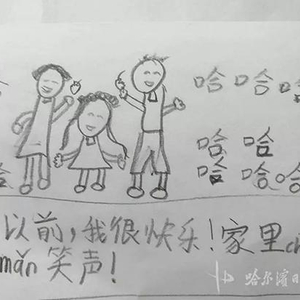 哈哈哈
哈哈
哈哈哈
以前,我很快乐!家里ch
mǎn笑声!
哈尔滨日